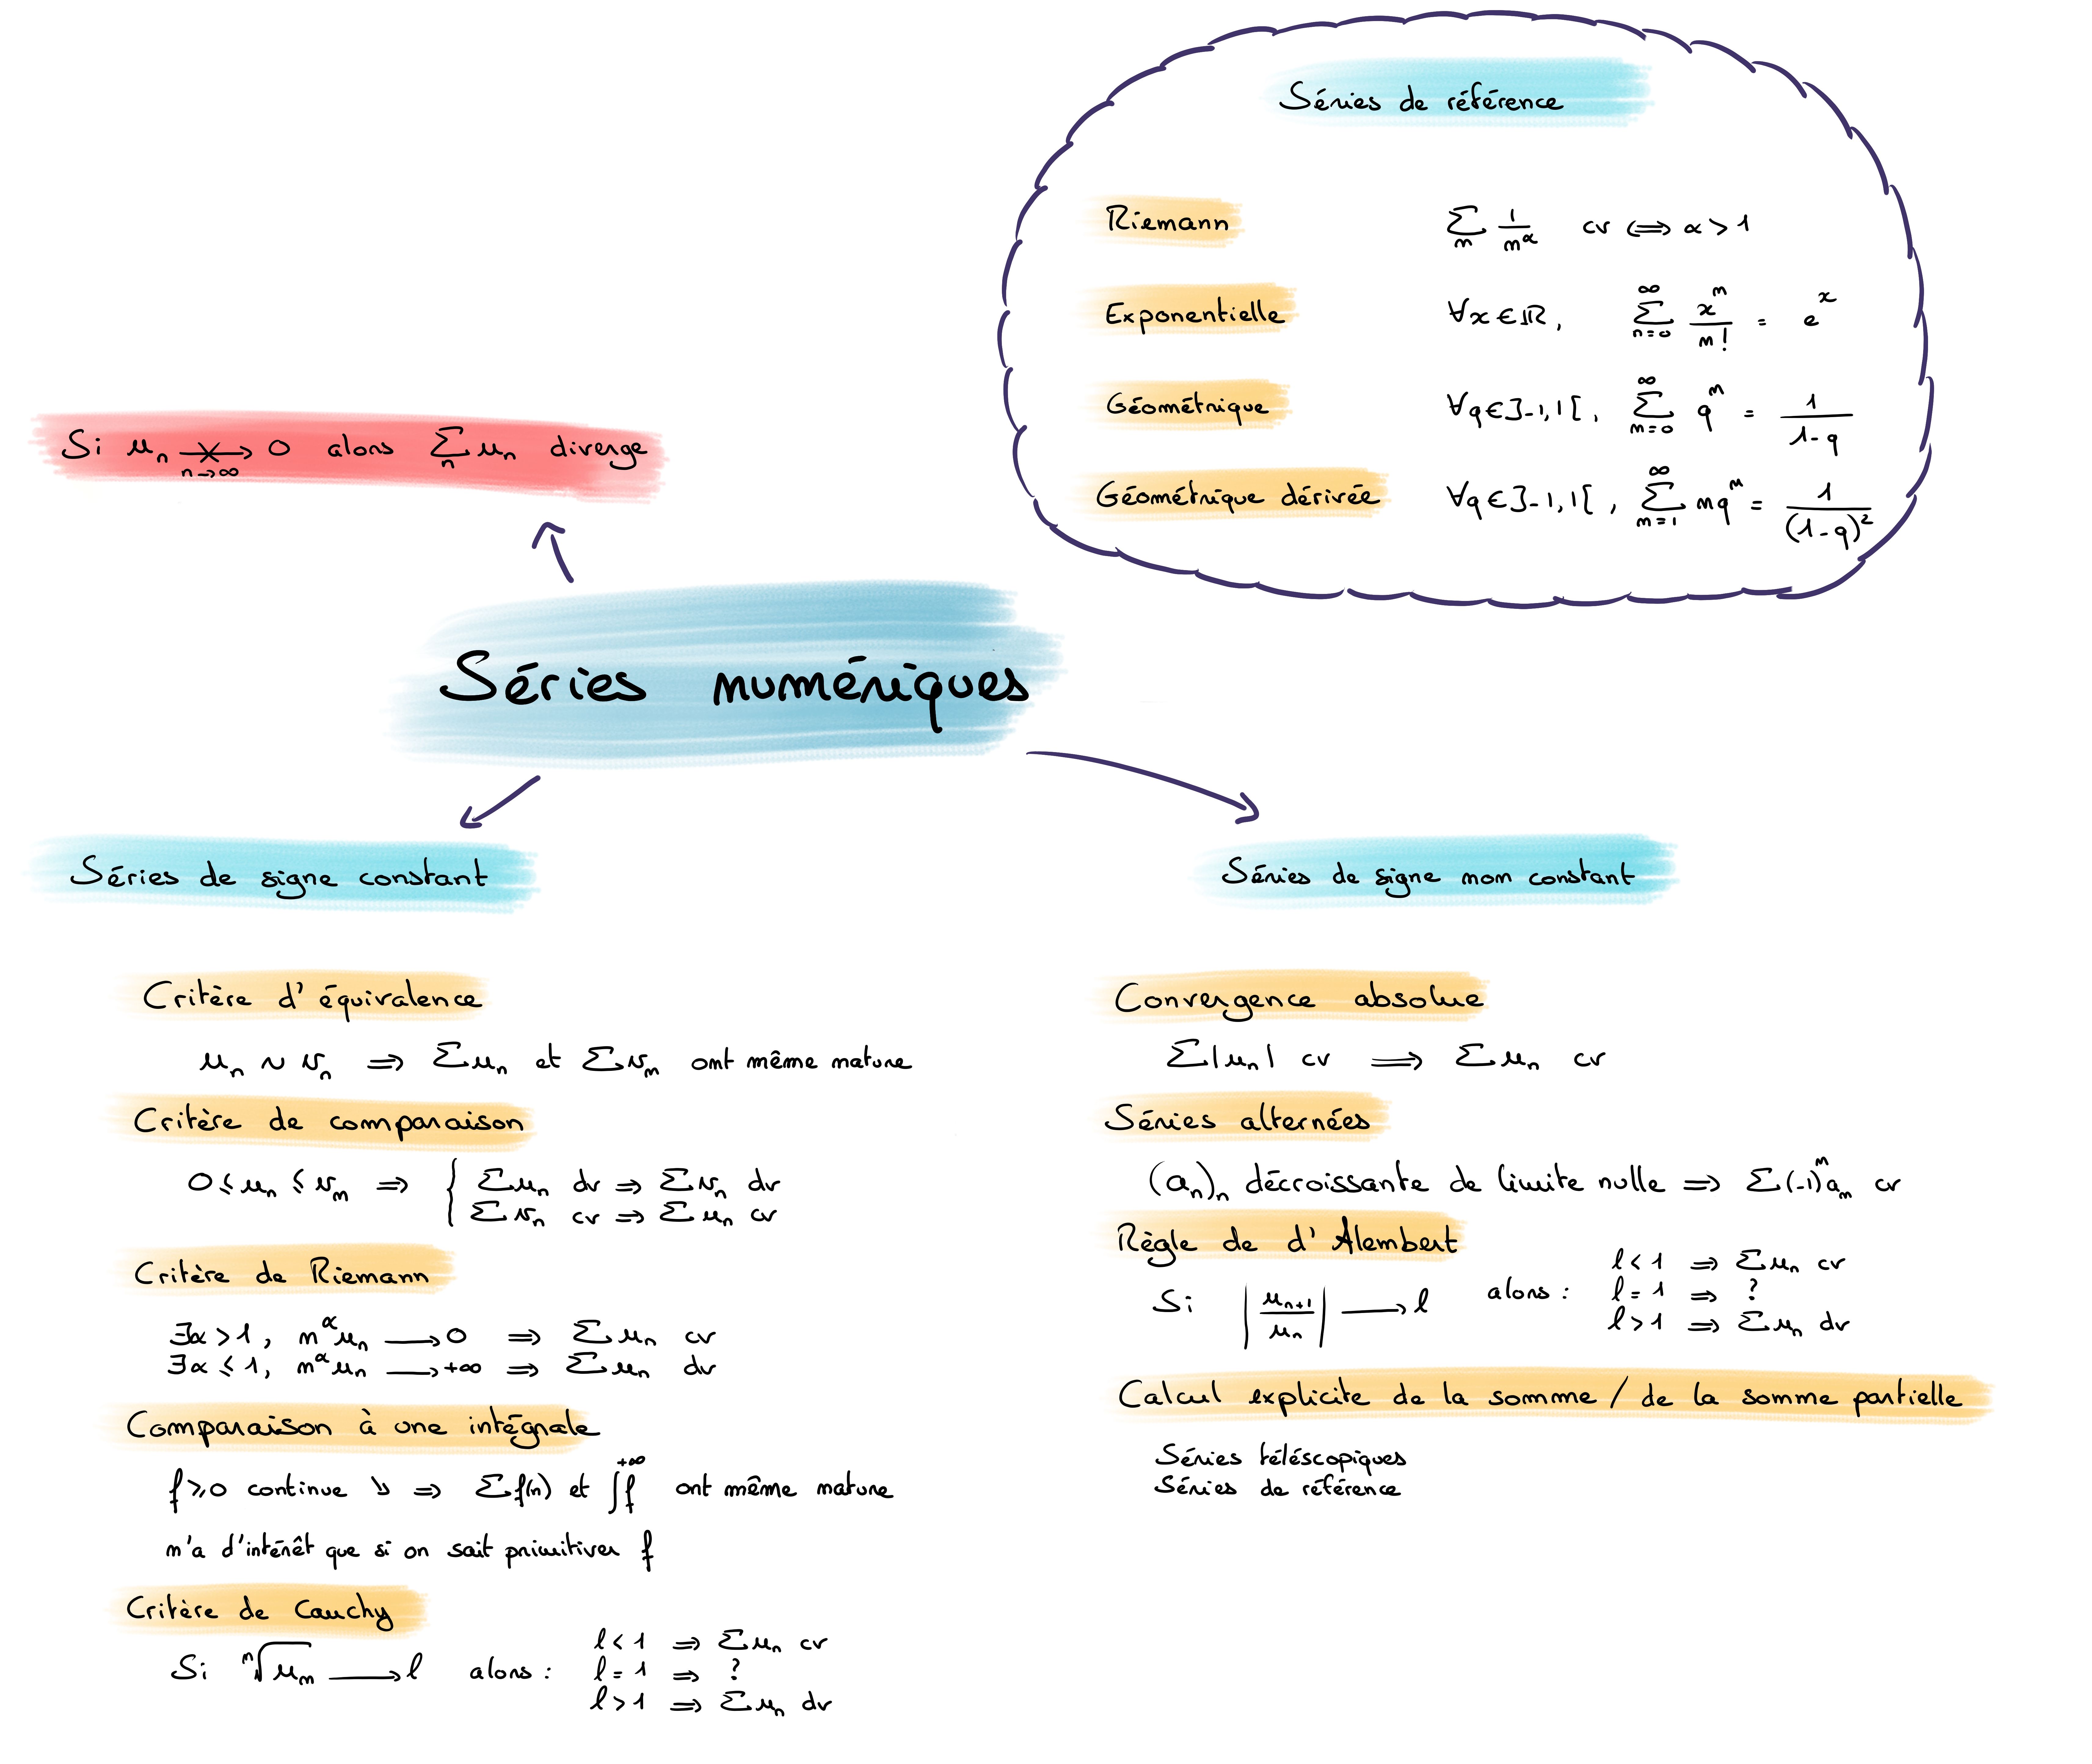 Séries de référence
Riemann ∑_n 1/n^α cv ⟺ α > 1
Exponentielle ∀x ∈ ℝ, ∑_{n=0}^∞ x^n/n! = e^x
Géométrique ∀q ∈ ]-1,1[, ∑_{n=0}^∞ q^n = 1/(1-q)
Géométrique dérivée ∀q ∈ ]-1,1[, ∑_{n=1}^∞ nq^n = 1/(1-q)²
Si u_n -/-> 0 (n→∞) alors ∑_n u_n diverge
Séries numériques
Séries de signe constant
Critère d'équivalence
u_n ~ v_n ⟹ ∑u_n et ∑v_n ont même nature
Critère de comparaison
0 ≤ u_n ≤ v_n ⟹ { ∑u_n dv ⟹ ∑v_n dv
∑v_n cv ⟹ ∑u_n cv
Critère de Riemann
∃α > 1, n^α u_n ⟶ 0 ⟹ ∑u_n cv
∃α ≤ 1, n^α u_n ⟶ +∞ ⟹ ∑u_n dv
Comparaison à une intégrale
f ≥ 0 continue ↘ ⟹ ∑f(n) et ∫^{+∞} f ont même nature
n'a d'intérêt que si on sait primitiver f
Critère de Cauchy
Si ⁿ√u_n ⟶ l alors :
l < 1 ⟹ ∑u_n cv
l = 1 ⟹ ?
l > 1 ⟹ ∑u_n dv
Séries de signe non constant
Convergence absolue
∑|u_n| cv ⟹ ∑u_n cv
Séries alternées
(a_n)_n décroissante de limite nulle ⟹ ∑(-1)^n a_n cv
Règle de d'Alembert
Si |u_{n+1}/u_n| ⟶ l alors :
l < 1 ⟹ ∑u_n cv
l = 1 ⟹ ?
l > 1 ⟹ ∑u_n dv
Calcul explicite de la somme / de la somme partielle
Séries téléscopiques
Séries de référence